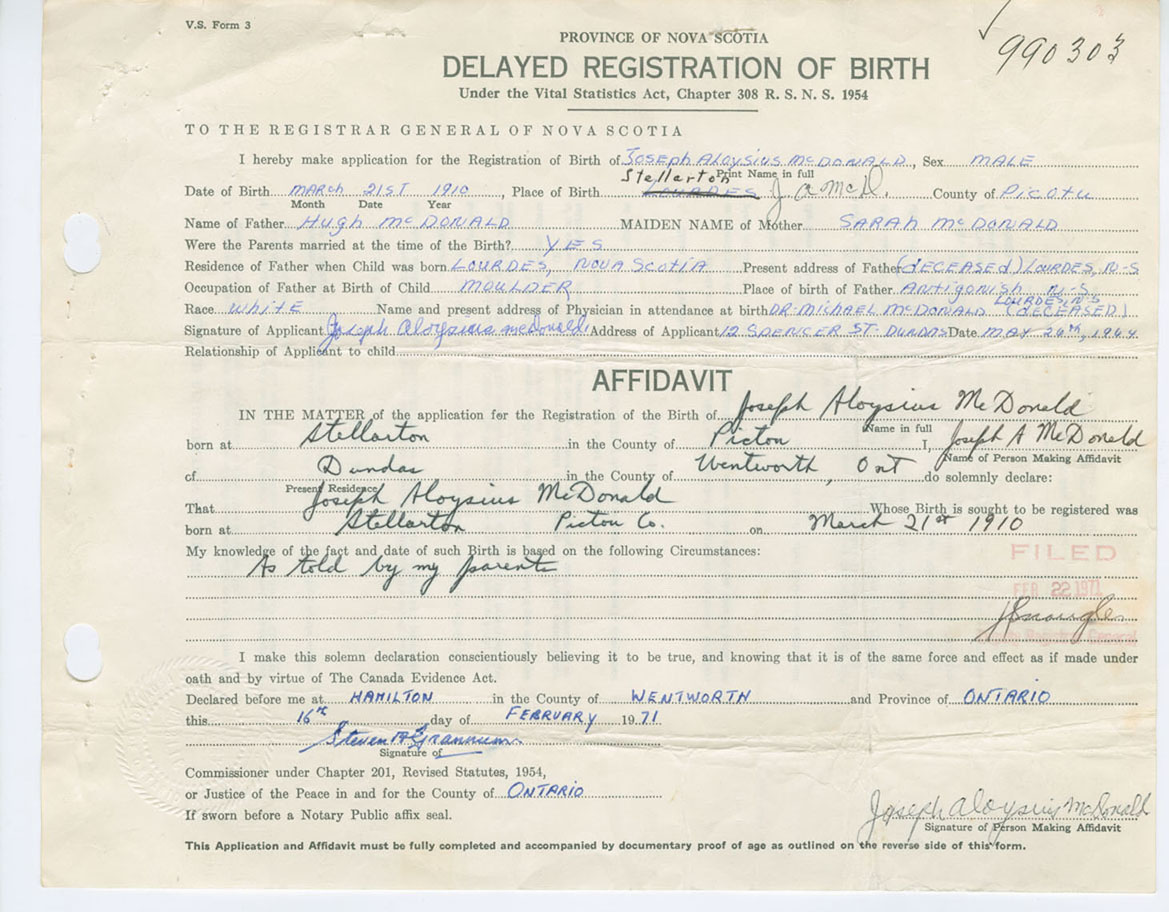 V.S. Form 3
990303
PROVINCE OF NOVA SCOTIA
DELAYED REGISTRATION OF BIRTH
Under the Vital Statistics Act, Chapter 308 R. S. N. S. 1954
TO THE REGISTRAR GENERAL OF NOVA SCOTIA
I hereby make application for the Registration of Birth of Joseph Aloysius McDonald, Sex MALE
Stellarton Print Name in full
Date of Birth MARCH 21ST 1910, Place of Birth LOURDES J A McD. County of Pictou
Month Date Year
Name of Father Hugh McDONALD MAIDEN NAME of Mother SARAH McDONALD
Were the Parents married at the time of the Birth? YES
Residence of Father when Child was born LOURDES, NOVA SCOTIA Present address of Father (DECEASED) LOURDES, N-S
Occupation of Father at Birth of Child MOULDER Place of birth of Father Antigonish N-S.
LOURDES, N-S
Race White Name and present address of Physician in attendance at birth DR. MICHAEL McDONALD (DECEASED)
Signature of Applicant Joseph Aloysius McDonald Address of Applicant 12 SPENCER ST. DUNDAS Date MAY 26th, 1964
Relationship of Applicant to child
AFFIDAVIT
IN THE MATTER of the application for the Registration of the Birth of Joseph Aloysius McDonald
Name in full
born at Stellarton in the County of Pictou I, Joseph A McDonald
Name of Person Making Affidavit
of Dundas in the County of Wentworth, Ont do solemnly declare:
Present Residence
That Joseph Aloysius McDonald Whose Birth is sought to be registered was
born at Stellarton Pictou Co. on March 21st 1910
My knowledge of the fact and date of such Birth is based on the following Circumstances:
As told by my parents
FILED
FEB 22 1971
Registrar General
I make this solemn declaration conscientiously believing it to be true, and knowing that it is of the same force and effect as if made under
oath and by virtue of The Canada Evidence Act.
Declared before me at HAMILTON in the County of WENTWORTH and Province of ONTARIO
this 16th day of FEBRUARY 1971
Steven A Grannum
Signature of
Commissioner under Chapter 201, Revised Statutes, 1954,
or Justice of the Peace in and for the County of ONTARIO
If sworn before a Notary Public affix seal.
Joseph Aloysius McDonald
Signature of Person Making Affidavit
This Application and Affidavit must be fully completed and accompanied by documentary proof of age as outlined on the reverse side of this form.